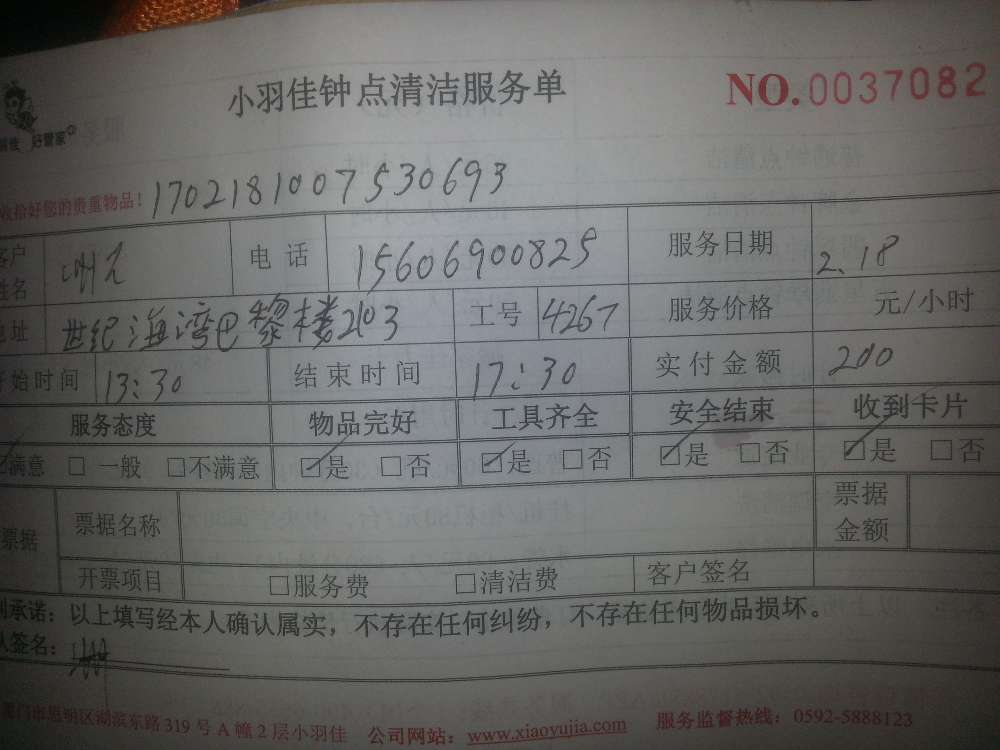 小羽佳钟点清洁服务单 NO.0037082
好管家
收拾好您的贵重物品! 1702181007530693
客户姓名 电话 15606900825 服务日期 2.18
地址 世纪海湾巴黎楼2103 工号 4267 服务价格 元/小时
开始时间 13:30 结束时间 17:30 实付金额 200
服务态度 物品完好 工具齐全 安全结束 收到卡片
☑满意 □一般 □不满意 ☑是 □否 ☑是 □否 ☑是 □否 ☑是 □否
票据 票据名称 票据金额
开票项目 □服务费 □清洁费 客户签名
承诺：以上填写经本人确认属实，不存在任何纠纷，不存在任何物品损坏。
签名：
厦门市思明区湖滨东路319号A幢2层小羽佳 公司网站：www.xiaoyujia.com 服务监督热线：0592-5888123